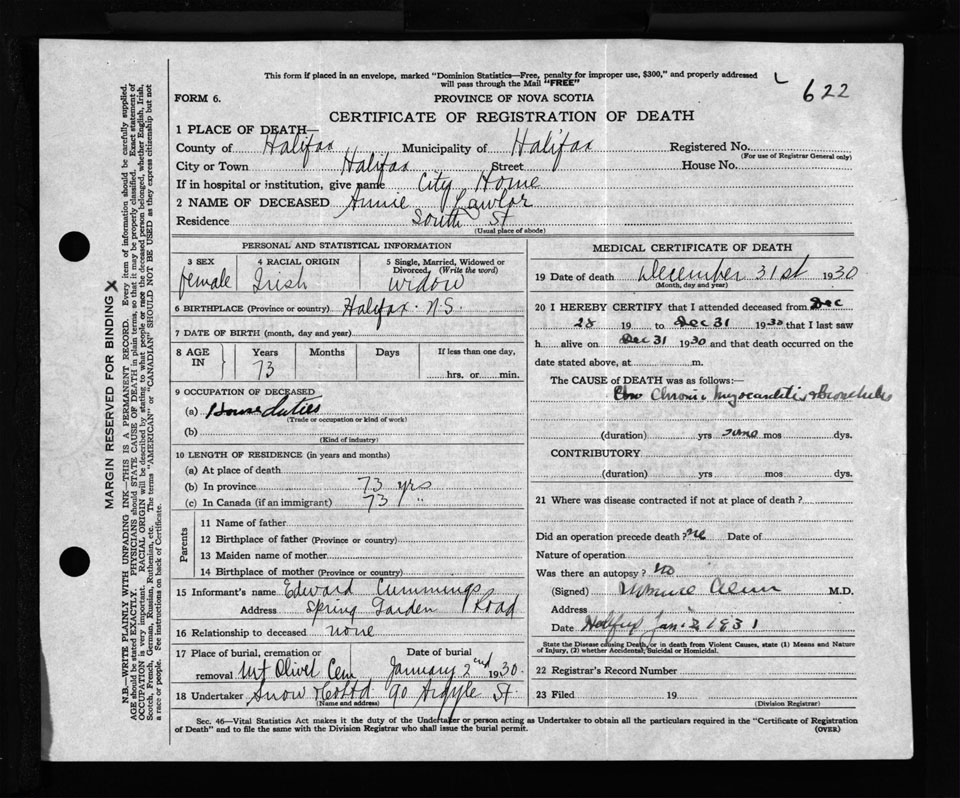 This form if placed in an envelope, marked "Dominion Statistics—Free, penalty for improper use, $300," and properly addressed
will pass through the Mail "FREE"
622
FORM 6.
PROVINCE OF NOVA SCOTIA
CERTIFICATE OF REGISTRATION OF DEATH
1 PLACE OF DEATH—
County of Halifax Municipality of Halifax Registered No.
(For use of Registrar General only)
City or Town Halifax Street House No.
If in hospital or institution, give name City Home
2 NAME OF DECEASED Annie Lawlor
Residence South St
(Usual place of abode)
PERSONAL AND STATISTICAL INFORMATION
3 SEX 4 RACIAL ORIGIN 5 Single, Married, Widowed or
Divorced, (Write the word)
female Irish widow
6 BIRTHPLACE (Province or country) Halifax. N.S.
7 DATE OF BIRTH (month, day and year)
8 AGE IN Years Months Days If less than one day,
73 hrs. or min.
9 OCCUPATION OF DECEASED
(a) House duties
(Trade or occupation or kind of work)
(b)
(Kind of industry)
10 LENGTH OF RESIDENCE (in years and months)
(a) At place of death
(b) In province 73 yrs
(c) In Canada (if an immigrant) 73 "
Parents
11 Name of father
12 Birthplace of father (Province or country)
13 Maiden name of mother
14 Birthplace of mother (Province or country)
15 Informant's name Edward Cummings
Address Spring Garden Road
16 Relationship to deceased none
17 Place of burial, cremation or Date of burial
removal Mt Olivet Cem January 2nd 1930.
18 Undertaker Snow & Co Ltd 90 Argyle St.
(Name and address)
MEDICAL CERTIFICATE OF DEATH
19 Date of death December 31st 1930
(Month, day and year)
20 I HEREBY CERTIFY that I attended deceased from Dec
28 19 to Dec 31 1930 that I last saw
h alive on Dec 31 1930 and that death occurred on the
date stated above, at m.
The CAUSE of DEATH was as follows:—
Chronic Myocarditis & Bronchitis
(duration) yrs mos dys.
CONTRIBUTORY
(duration) yrs mos dys.
21 Where was disease contracted if not at place of death?
Did an operation precede death? no Date of
Nature of operation
Was there an autopsy? no
(Signed) M.D.
Address
Date Halifax Jan 2 1931
State the Disease causing Death, or in death from Violent Causes, state (1) Means and Nature
of Injury, (2) whether Accidental, Suicidal or Homicidal.
22 Registrar's Record Number
23 Filed 19
(Division Registrar)
Sec. 46—Vital Statistics Act makes it the duty of the Undertaker or person acting as Undertaker to obtain all the particulars required in the "Certificate of Registration
of Death" and to file the same with the Division Registrar who shall issue the burial permit.
(OVER)
MARGIN RESERVED FOR BINDING X
N.B.—WRITE PLAINLY WITH UNFADING INK—THIS IS A PERMANENT RECORD. Every item of information should be carefully supplied.
AGE should be stated EXACTLY. PHYSICIANS should STATE CAUSE OF DEATH in plain terms, so that it may be properly classified. Exact statement of
OCCUPATION is very important. RACIAL ORIGIN will be described by stating to what people or race the deceased person belonged, whether English, Irish,
Scotch, French, German, Russian, Ruthenian, etc. The terms "AMERICAN" or "CANADIAN" SHOULD NOT BE USED as they express citizenship but not
a race or people. See instructions on back of Certificate.